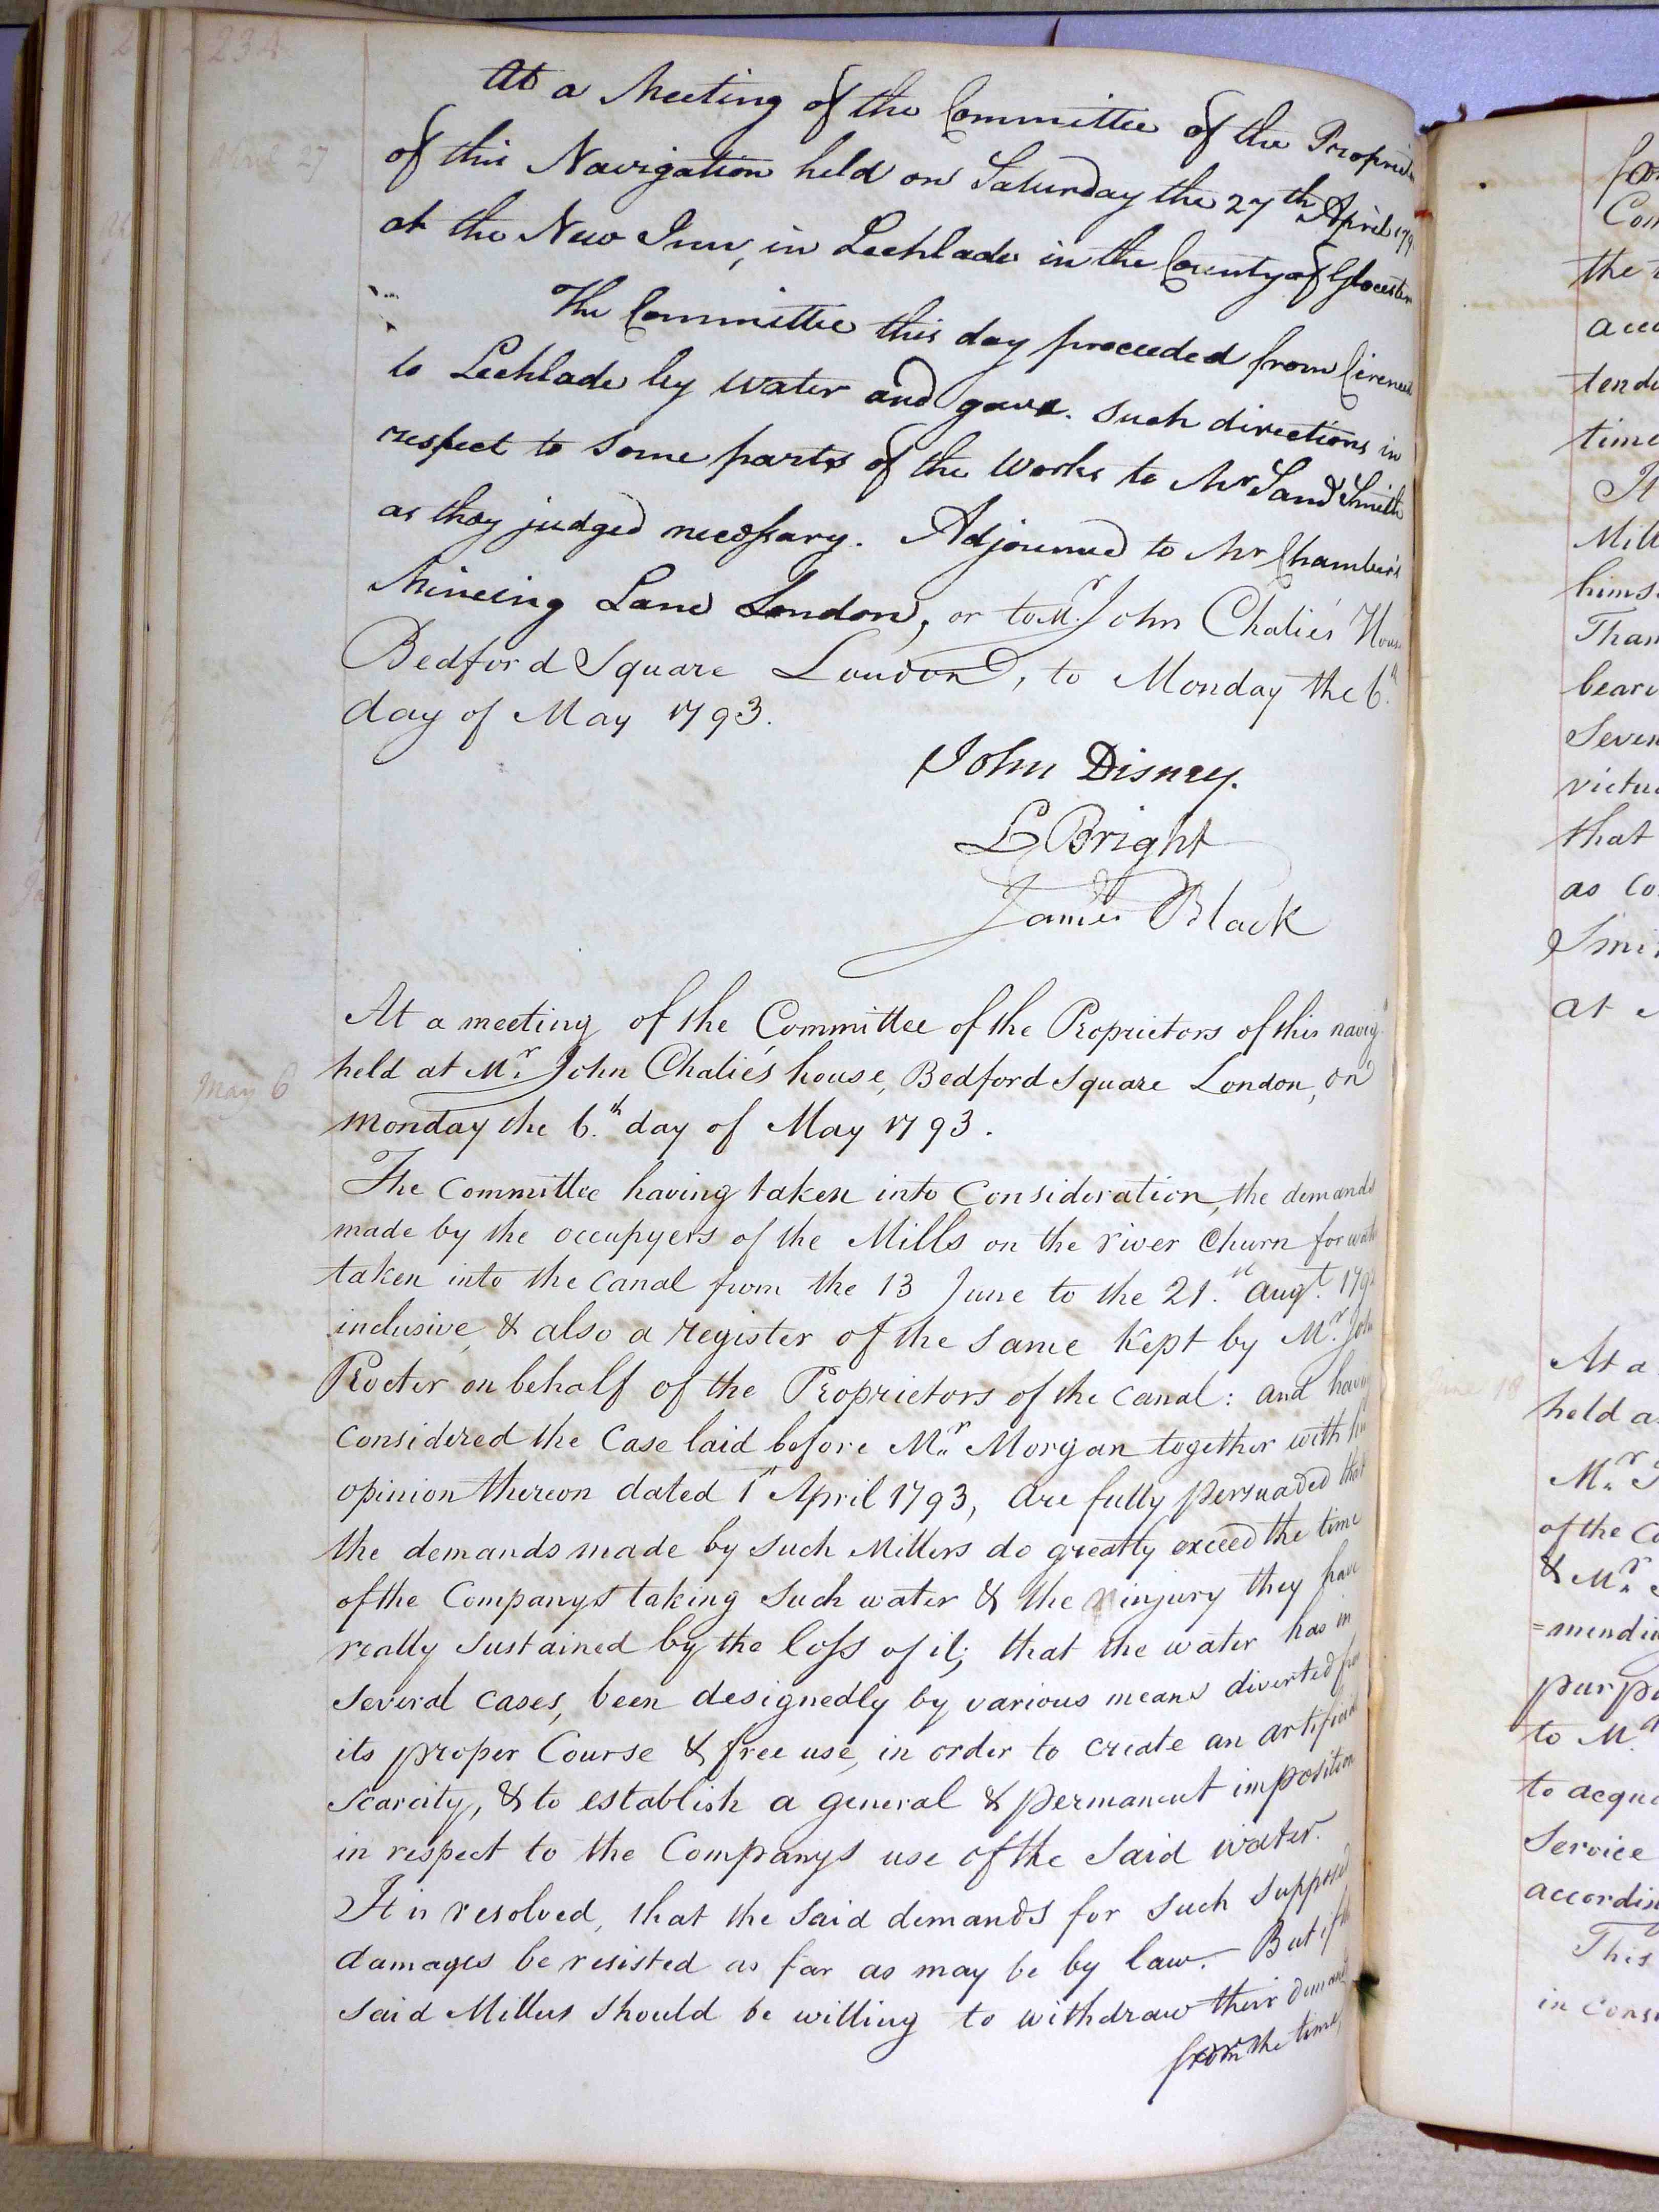 234
At a Meeting of the Committee of the Propriet
April 27
of this Navigation held on Saturday the 27th April 179
at the New Inn, in Lechlade in the County of Glocester
The Committee this day proceeded from Cirence
to Lechlade by water and gave such directions in
respect to some parts of the Works to Mr Sand Smith
as they judged necessary. Adjourned to Mr Chambers's
Mincing Lane London, or to Mr. John Chalié's House
Bedford Square London, to Monday the 6th
day of May 1793.
John Disney.
L Bright
James Black
At a meeting of the Committee of the Proprietors of this navign
held at Mr. John Chalié's house, Bedford Square London, on
May 6
Monday the 6th day of May 1793.
The Committee having taken into Consideration, the demands
made by the occupyers of the Mills on the river Churn for wate
taken into the Canal from the 13 June to the 21st Augt. 179
inclusive, & also a register of the same kept by Mr. John
Procter on behalf of the Proprietors of the Canal: and having
Considered the Case laid before Mr. Morgan together with his
opinion thereon dated 1st April 1793, are fully persuaded that
the demands made by such Millers do greatly exceed the time
of the Companys taking such water & the injury they have
really sustained by the loss of it; that the water has in
several cases, been designedly by various means diverted from
its proper Course & free use, in order to create an artificial
scarcity, & to establish a general & permanent imposition
in respect to the Companys use of the said water.
It is resolved, that the said demands for such supposed
damages be resisted as far as may be by law. But if the
said Millers should be willing to withdraw their demand
from the time
for
Com
the
acc
tend
time
It
Mill
hims
Than
bear
Seven
victu
that
as Co
Smi
at
At a
18
held a
Mr.
of the Co
& Mr.
=mendi
purpo
to Mr
to acqu
Service
accordin
This
in Cons